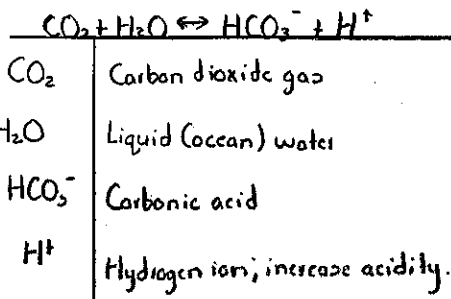 CO₂ + H₂O ↔ HCO₃⁻ + H⁺
CO₂ Carbon dioxide gas
H₂O Liquid (ocean) water
HCO₃⁻ Carbonic acid
H⁺ Hydrogen ion; increase acidity.